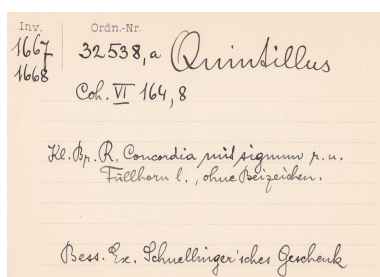 Inv. Ordn.-Nr.
1667 32538,a Quintillus
1668
Coh. VI 164,8
Kl. Br. R. Concordia mit signum r. u.
Füllhorn l., ohne Beizeichen.
Bess. Ex. Schnellinger'sches Geschenk